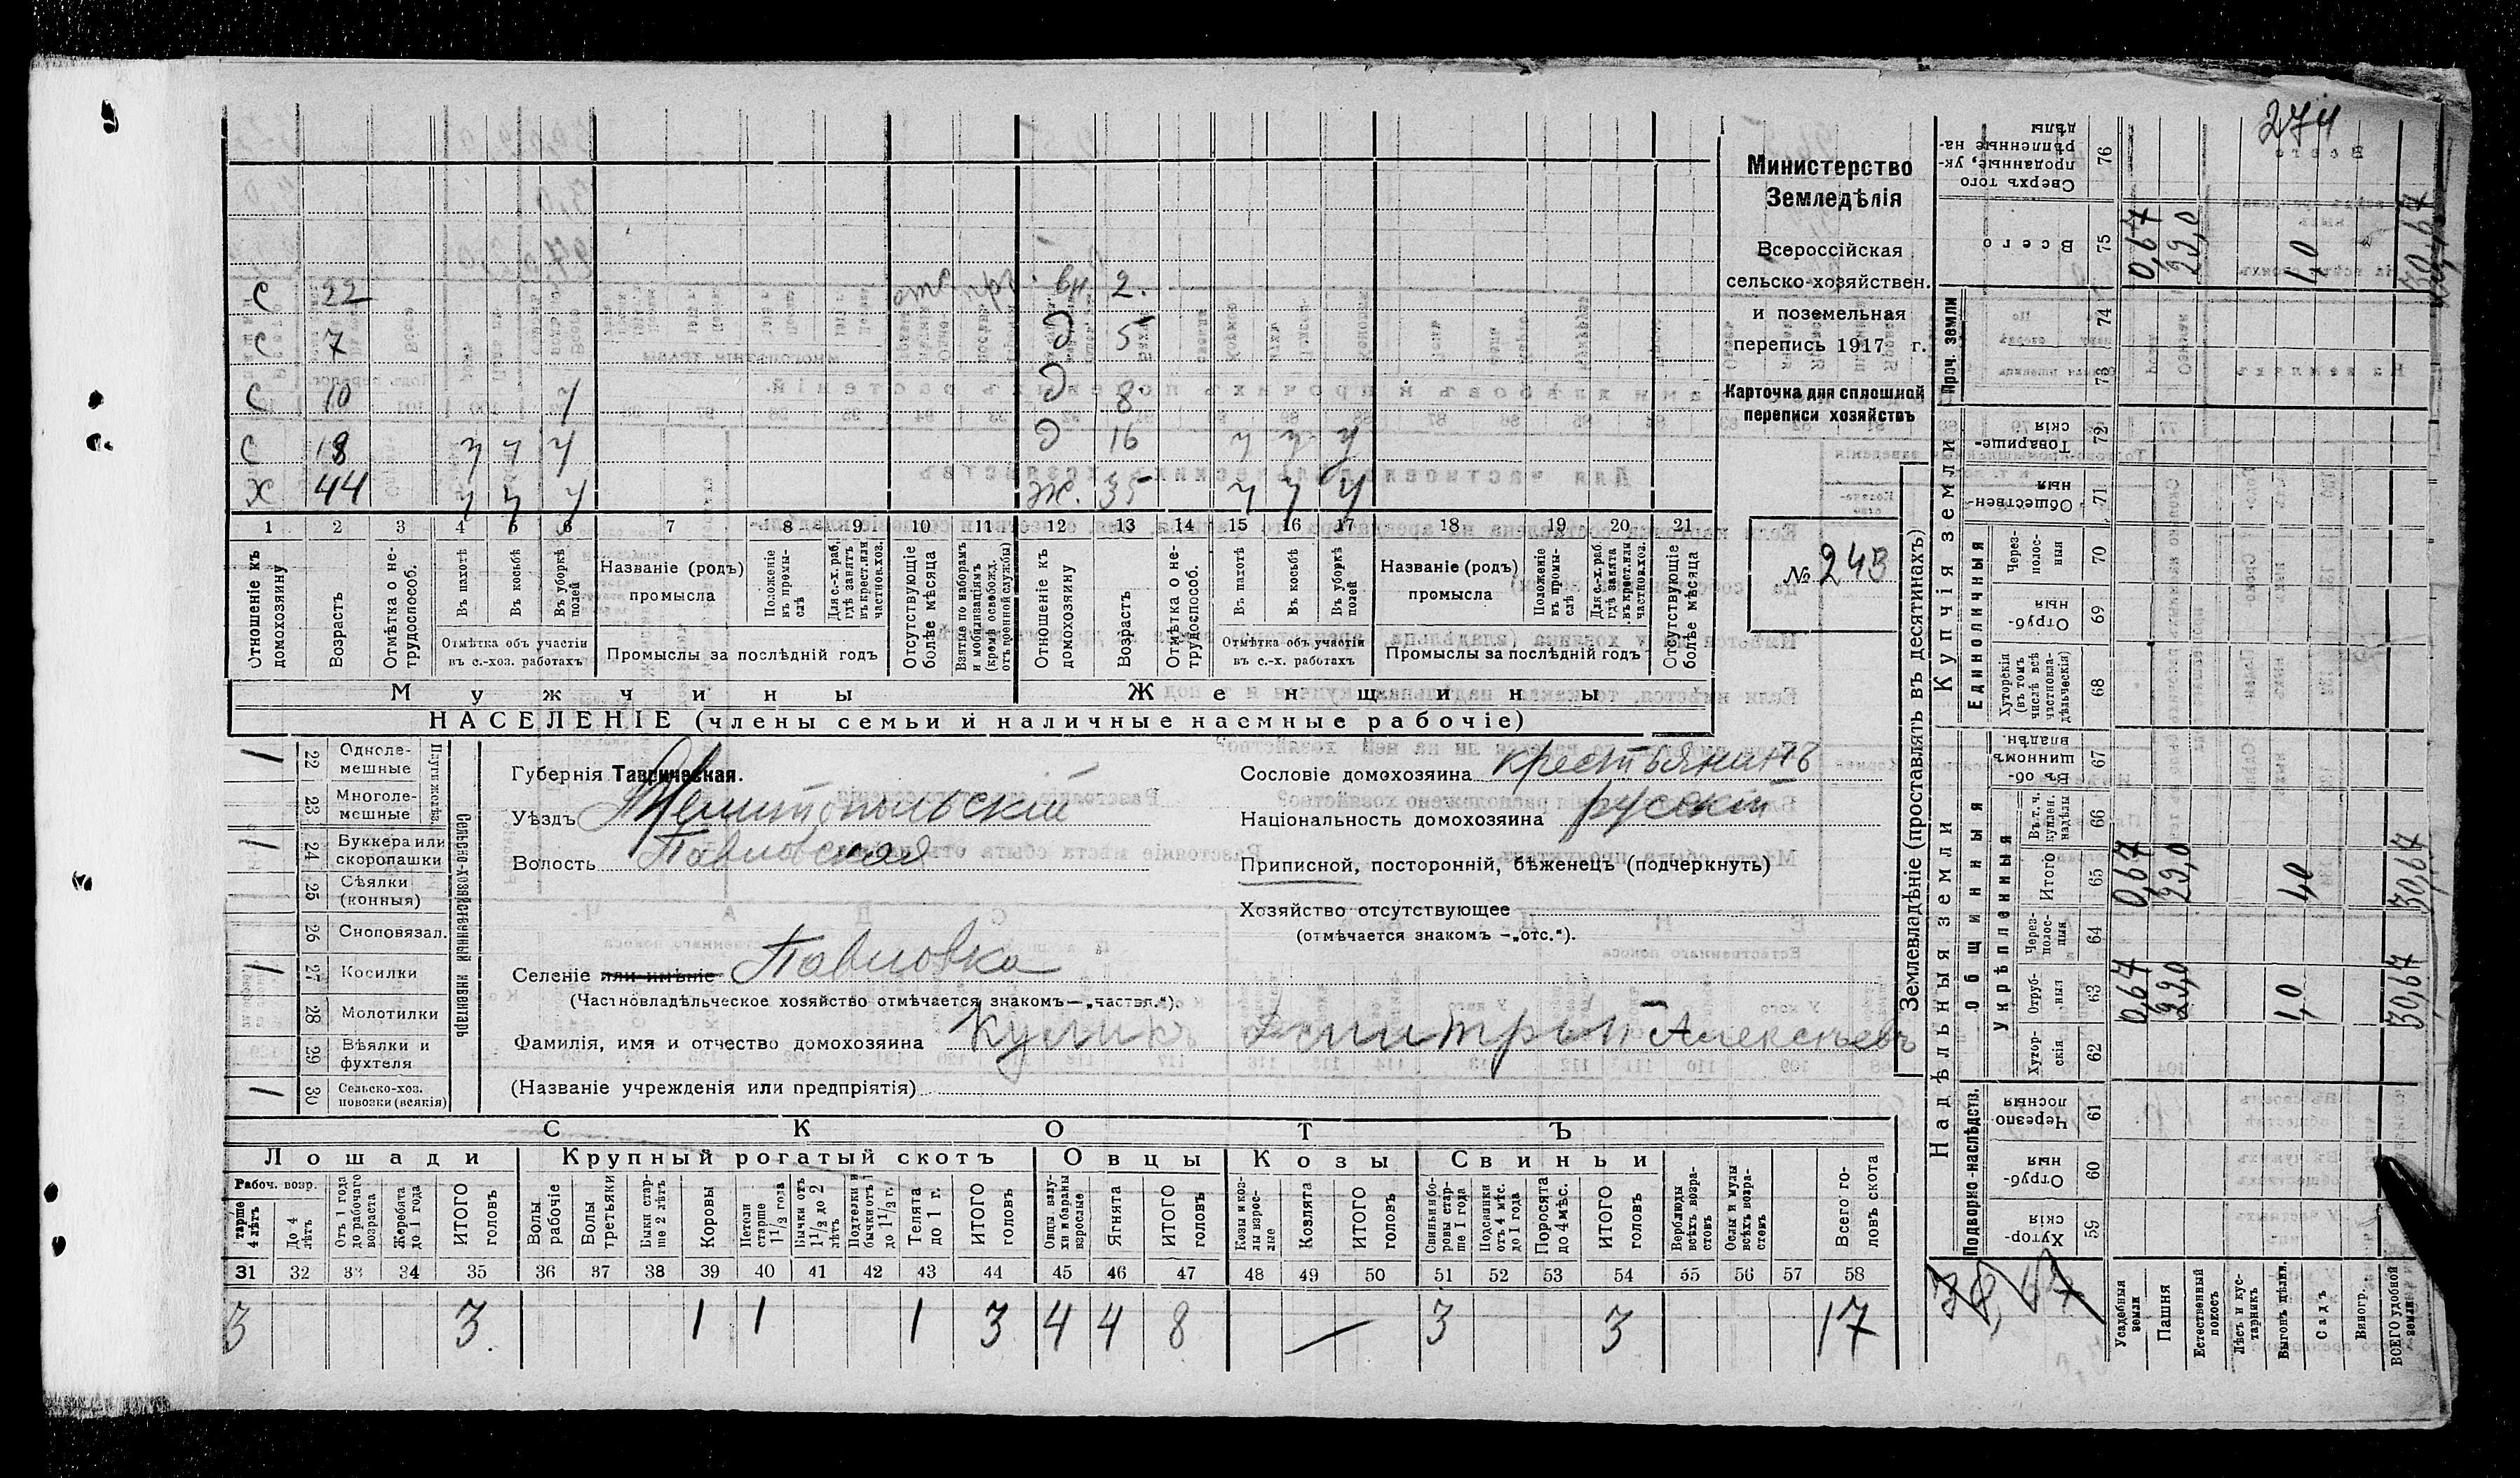 274
Министерство
Земледѣлія
Всероссійская
сельско-хозяйствен.
и поземельная
перепись 1917 г.
Карточка для сплошной
переписи хозяйствъ
№ 243
С 22 вн 2.
С 7 д 5
С 10 у д 8
С 18 у у у д 16 у у у
Х 44 у у у ж. 35 у у у
1 2 3 4 5 6 7 8 9 10 11 12 13 14 15 16 17 18 19 20 21
Отношеніе къ домохозяину
Возрастъ
Отмѣтка о не-трудоспособ.
Въ пахотѣ
Въ косьбѣ
Въ уборкѣ полей
Отмѣтка объ участіи въ с.-хоз. работахъ
Названіе (родъ) промысла
Положеніе въ промы-слѣ
Для с.-х. раб. гдѣ занятъ въ крест. или частнов. хоз.
Промыслы за послѣдній годъ
Отсутствующіе болѣе мѣсяца
Взятые по наборамъ и мобилизаціямъ (кромѣ освобожд. отъ военной службы)
Отношеніе къ домохозяину
Возрастъ
Отмѣтка о не-трудоспособ.
Въ пахотѣ
Въ косьбѣ
Въ уборкѣ полей
Отмѣтка объ участіи въ с.-х. работахъ
Названіе (родъ) промысла
Положеніе въ промы-слѣ
Для с.-х. раб. гдѣ занята въ крест. или частнов. хоз.
Промыслы за послѣдній годъ
Отсутствующіе болѣе мѣсяца
Мужчины Женщины
НАСЕЛЕНІЕ (члены семьи и наличные наемные рабочіе)
Сельско-хозяйственный инвентарь
Плуги желѣз.
22 Одноле-мешные 1
23 Многоле-мешные
24 Буккера или скоропашки 1
25 Сѣялки (конныя)
26 Сноповязал.
27 Косилки 1
28 Молотилки
29 Вѣялки и фухтеля
30 Сельско-хоз. повозки (всякія) 1
Губернія Таврическая.
Уѣздъ Мелитопольскій
Волость Павловская
Селеніе или имѣніе Павловка
(Частновладѣльческое хозяйство отмѣчается знакомъ—„частвл.“).
Фамилія, имя и отчество домохозяина Куликъ Дмитрый Алексѣевъ
(Названіе учрежденія или предпріятія)
Сословіе домохозяина крестьянинъ
Національность домохозяина русскій
Приписной, посторонній, бѣженецъ (подчеркнуть)
Хозяйство отсутствующее
(отмѣчается знакомъ —„отс.“).
СКОТЪ
Лошади Крупный рогатый скотъ Овцы Козы Свиньи
Рабоч. возр.
тарше 4 лѣтъ
До 4 лѣтъ
Отъ 1 года до рабочаго возраста
Жеребята до 1 года
ИТОГО головъ
Волы рабочіе
Волы третьяки
Быки стар-ше 2 лѣтъ
Коровы
Петели старше 1 1/2 года
Бычки отъ 1 1/2 до 2 лѣтъ
Подтелки и бычки отъ 1 до 1 1/2 г.
Телята до 1 г.
ИТОГО головъ
Овцы валу-хи и бараны взрослые
Ягнята
ИТОГО головъ
Козы и коз-лы взрос-лые
Козлята
ИТОГО головъ
Свиньи и бо-ровы стар-ше 1 года
Подсвинки отъ 4 мѣс. до 1 года
Поросята до 4 мѣс.
ИТОГО головъ
Верблюды всѣхъ возра-стовъ
Ослы и мулы всѣхъ возра-стовъ
Всего го-ловъ скота
31 32 33 34 35 36 37 38 39 40 41 42 43 44 45 46 47 48 49 50 51 52 53 54 55 56 57 58
3 3 1 1 1 3 4 4 8 — 3 3 17
Землевладѣніе (проставлять въ десятинахъ)
Надѣльныя земли Купчія земли Проч. земли
Подворно-наслѣдств. Общинныя Единоличныя
Укрѣпленныя
Хутор-скія 59
Отруб-ныя 60
Черезпо-лосныя 61
Хутор-скія 62
Отруб-ныя 63 0,67 29,0 1,0 30,67
Через-полос-ныя 64
Итого 65 0,67 29,0 1,0 30,67
Въ т. ч. куплен. надѣлы 66
Въ об-щинномъ владѣн. 67
Хуторскія (въ томъ числѣ всѣ частновла-дѣльческія) 68
Отруб-ныя 69
Через-полос-ныя 70
Обществен-ныя 71
Товарище-скія 72
73
74
Всего 75 0,67 29,0 1,0 30,67
Сверхъ того проданные, ук-рѣпленные на-дѣлы 76
Усадебныя земли
Пашня
Естественный покосъ
Лѣсъ и кус-тарникъ
Выгонъ цѣлин.
Садъ
Виногр.
ВСЕГО удобной земли